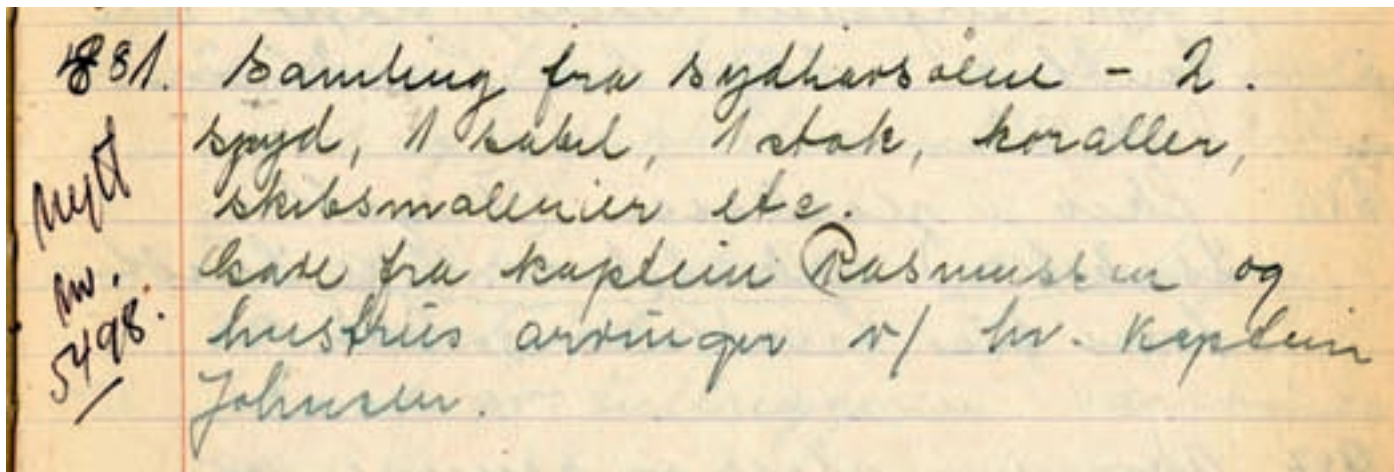 881. Samling fra Sydhavsøene - 2.
spyd, 1 sabel, 1 stok, koraller,
skibsmalerier etc.
Gave fra kaptein Rasmussen og
hustrus arvinger v/ hr. Kaptein
Johnsen.
Nytt
nr.
5498.